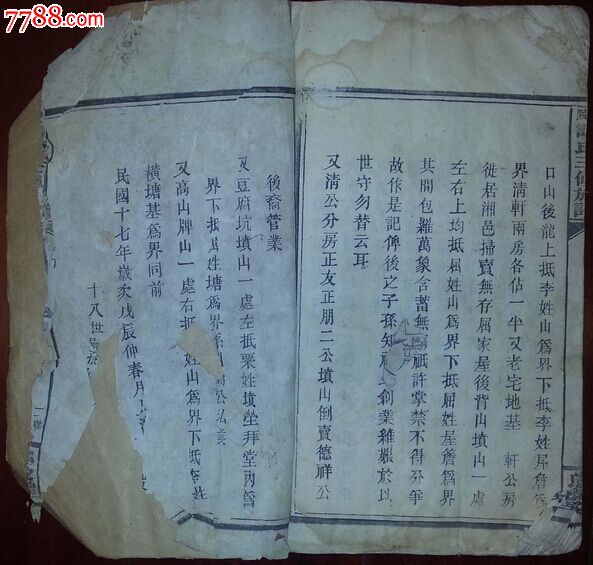 7788.com
口山後龍上抵李姓山爲界下抵李姓屋詹爲
界清軒兩房各佔一半又老宅地基 軒公房
徙居湘邑掃賣無存屈家屋後背山墳山一處
左右上均抵屈姓山爲界下抵屈姓屋詹爲界
其間包羅萬象含蓄無 祇許掌禁不得分爭
故作是記俾後之子孫知 創業維艱於以
世守勿替云耳
又清公分房正友正朋二公墳山倒賣德祥公
後裔管業
又豆麻坑墳山一處左抵粟姓墳塋拜堂內爲
界下抵 姓塘爲界
又高山牌山一處右抵 姓山爲界下抵李姓
橫塘基爲界同前
民國十七年歲次戊辰仲春月
十八世
氏三修族譜